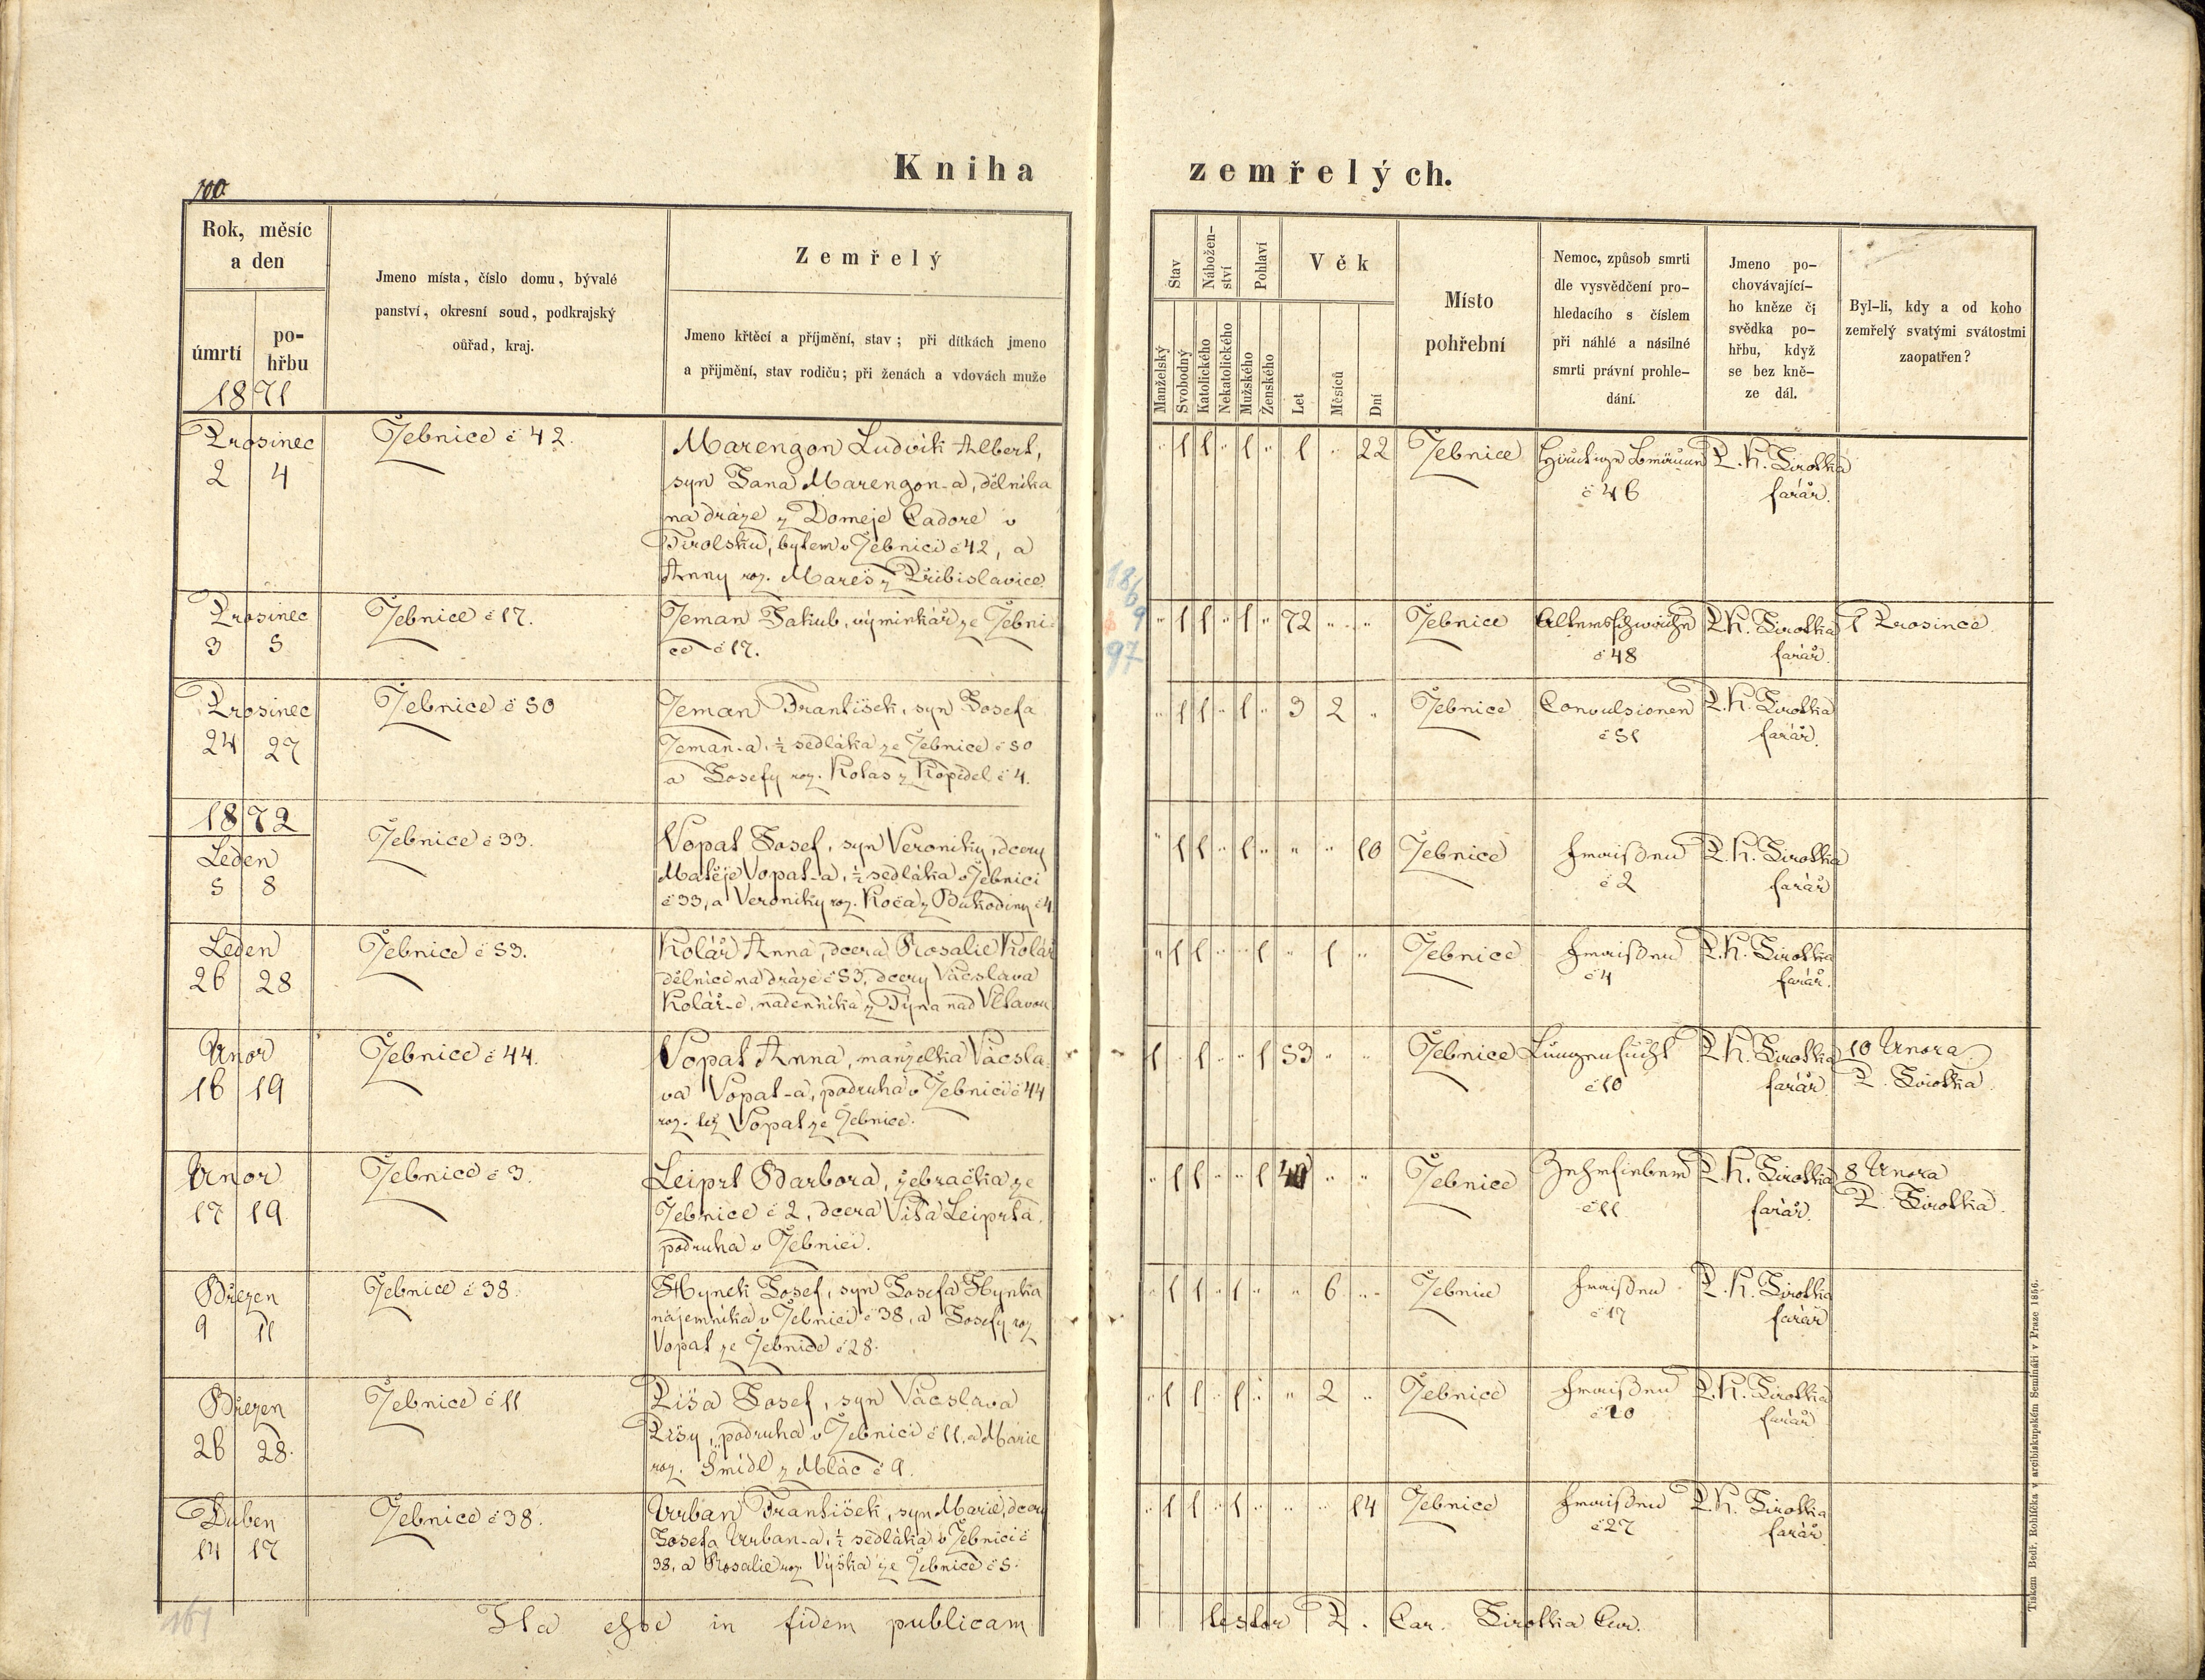 Kniha zemřelých.
100.
Rok, měsíc
a den
úmrtí
po-
hřbu
1871
Jmeno místa, číslo domu, bývalé
panství, okresní soud, podkrajský
oúřad, kraj.
Zemřelý
Jmeno křtěcí a příjmění, stav; při dítkách jmeno
a přijmění, stav rodiču; při ženách a vdovách muže
Stav
Nábožen-
ství
Pohlaví
Věk
Manželský
Svobodný
Katolického
Nekatolického
Mužského
Ženského
Let
Měsíců
Dní
Místo
pohřební
Nemoc, způsob smrti
dle vysvědčení pro-
hledacího s číslem
při náhlé a násilné
smrti právní prohle-
dání.
Jmeno po-
chovávající-
ho kněze či
svědka po-
hřbu, když
se bez kně-
ze dál.
Byl-li, kdy a od koho
zemřelý svatými svátostmi
zaopatřen?
Prosinec
2 4
Žebnice č 42.
Marengon Ludvik Albert,
syn Jana Marengon-a, dělníka
na dráze z Domeje Cadore v
Tirolsku, bytem v Žebnici č 42, a
Anny roz. Mareš z Přibislavice.
" 1 1 " 1 " 1 " 22
Žebnice
Häutige Bräune
č 46
P. K. Sirotka
farář.
Prosinec
3 5
Žebnice č 17.
Zeman Jakub, výminkář ze Žebni-
ce č 17.
" 1 1 " 1 " 72 " "
Žebnice
Altersschwäche
č 48
P. K. Sirotka
farář.
1 Prosince
1869
97
Prosinec
24 27
Žebnice č 50
Zeman František, syn Josefa
Zeman-a, ½ sedláka ze Žebnice č 50
a Josefy roz. Kolas z Kopidel č 4.
" 1 1 " 1 " 3 2 "
Žebnice
Convulsionen
č 51
P. K. Sirotka
farář.
1872
Leden
5 8
Žebnice č 33.
Vopat Josef, syn Veroniky, dcery
Matěje Vopat-a, ½ sedláka v Žebnici
č 33, a Veroniky roz. Koča z Bukodiny č 4
" 1 1 " 1 " " " 10
Žebnice
Fraißen
č 2
P. K. Sirotka
farář
Leden
26 28
Žebnice č 53.
Kolář Anna, dcera Rosalie Kolář
dělnice na dráze č 53, dcery Vácslava
Kolář-e, nadenníka z Týna nad Vltavou
" 1 1 " " 1 " 1 "
Žebnice
Fraißen
č 4
P. K. Sirotka
farář.
Unor
16 19
Žebnice č 44.
Vopat Anna, manželka Vácsla-
va Vopat-a, podruha v Žebnici č 44
roz. též Vopat ze Žebnice.
1 " 1 " " 1 53 " "
Žebnice
Lungensucht
č 10
P. K. Sirotka
farář
10 Unora
P. Sirotka.
Unor
17 19
Žebnice č 3.
Leiprt Barbora, žebračka ze
Žebnice č 2, dcera Víta Leiprta,
podruha v Žebnici.
" 1 1 " " 1 " "
Žebnice
Zehrfieber
č 11
P. K. Sirotka
farář.
8 Unora
P. Sirotka.
Březen
9 11
Žebnice č 38.
Hynek Josef, syn Josefa Hynka
nájemníka v Žebnici č 38, a Josefy roz
Vopat ze Žebnice č 28.
" 1 1 " 1 " " 6 "
Žebnice
Fraißen
č 17
P. K. Sirotka
farář
Březen
26 28.
Žebnice č 11
Píša Josef, syn Vácslava
Píšy, podruha v Žebnici č 11, a Marie
roz. Šmídl z Mlác č 9.
" 1 1 " 1 " " 2 "
Žebnice
Fraißen
č 20
P. K. Sirotka
farář
Duben
14 17
Žebnice č 38.
Urban František, syn Marie, dcery
Josefa Urban-a, ½ sedláka v Žebnici č
38, a Rosalie roz. Výška ze Žebnice č 5.
" 1 1 " 1 " " " 14
Žebnice
Fraißen
č 27
P. K. Sirotka
farář.
Ita esse in fidem publicam testor P. Car. Sirotka Cur.
161
Tiskem Bedř. Rohlíčka v arcibiskupském Semináři v Praze 1856.